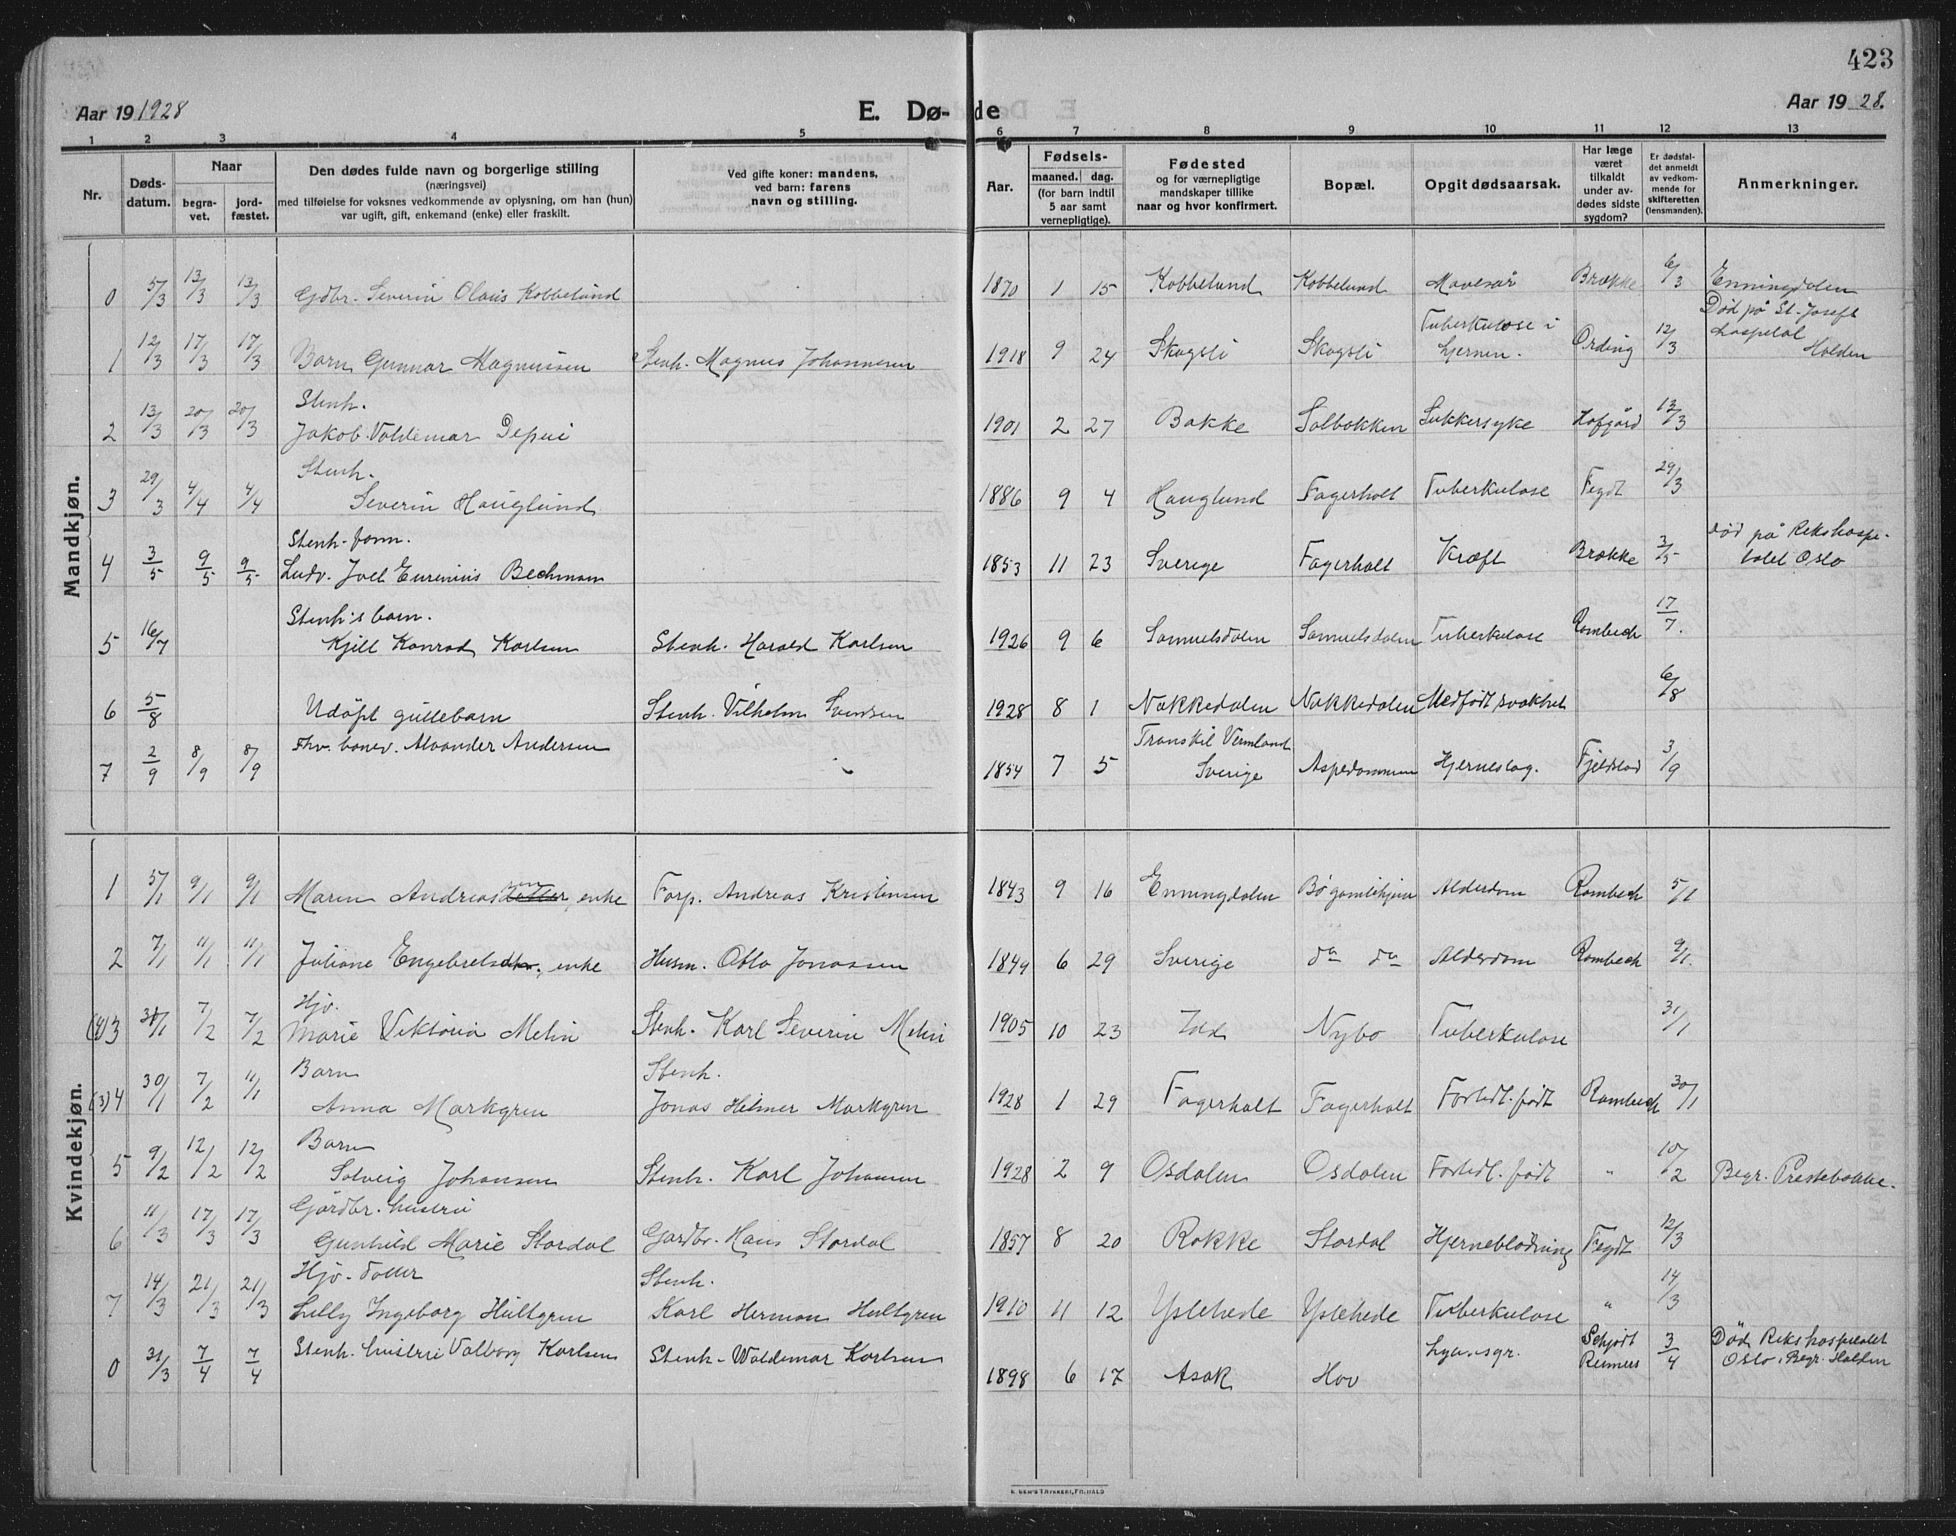 423
Aar 19 1928 E. Dø- de Aar 19 28.
1 2 3 4 5 6 7 8 9 10 11 12 13
Nr. Døds-datum. Naar begra-vet. jord-fæstet. Den dødes fulde navn og borgerlige stilling (næringsvei) med tilføielse for voksnes vedkommende av oplysning, om han (hun) var ugift, gift, enkemand (enke) eller fraskilt. Ved gifte koner: mandens, ved barn: farens navn og stilling. Aar. Fødsels- maaned. dag. (for barn indtil 5 aar samt vernepligtige). Fødested og for værnepligtige mandskaper tillike naar og hvor konfirmert. Bopæl. Opgit dødsaarsak. Har læge været tilkaldt under av-dødes sidste sygdom? Er dødsfal-det anmeldt av vedkom-mende for skifteretten (lensmanden). Anmerkninger.
Mandkjøn.
0 5/3 13/3 13/3 Gdbr. Severin Olaus Kobbelund 1870 1 15 Kobbelund Kobbelund Mavesår Brække 6/3 Enningdalen
1 12/3 17/3 17/3 Barn Gunnar Magnussen Stenh. Magnus Johannesen 1918 9 24 Skogsli Skogsli Tuberkulose i hjernen. Ording 12/3 Død på St. Josefs hospital Halden
2 13/3 20/3 20/3 Stenh. Jakob Valdemar Depui 1901 2 27 Bakke Solbakken Sukkersyke Hofgård 13/3
3 29/3 4/4 4/4 Stenh. Severin Hauglund 1886 9 4 Hauglund Fagerholt Tuberkulose Fegdt 29/3
4 3/5 9/5 9/5 Stenh.-form. Ludv. Joel Eurenius Bechman 1853 11 23 Sverige Fagerholt Kræft Brække 3/5 død på Rikshospi-talet Oslo
5 16/7 Stenh's barn. Kjell Konrad Karlsen Stenh. Harald Karlsen 1926 9 6 Samuelsdalen Samuelsdalen Tuberkulose Rombech 17/7.
6 5/8 Udöpt guttebarn Stenh. Vilhelm Svendsen 1928 8 1 Nakkedalen Nakkedalen Medfödt svakhet 6/8
7 2/9 8/9 8/9 Fhv. banev. Alexander Andersen 1854 7 5 Transkil Vermland Sverige Aspedammen Hjerneslag. Fjeldstad 3/9
Kvindekjøn.
1 5/1 9/1 9/1 Maren Andreassen, enke Forp. Andreas Kristensen 1843 9 16 Enningdalen Bö gamlehjem Alderdom Rombech 5/1
2 7/1 11/1 11/1 Juliane Engebretsdtr., enke Husm. Otto Jonassen 1849 6 29 Sverige do do Alderdom Rombech 9/1.
(4) 3 31/1 7/2 7/2 Hjv. Marie Viktoria Melin Stenh. Karl Severin Melin 1905 10 23 Idd Nybo Tuberkulose 31/1
(3) 4 30/1 7/2 11/1 Barn Anna Markgren Stenh. Jonas Helmer Markgren 1928 1 29 Fagerholt Fagerholt Fortidl. född Rombech 30/1
5 9/2 12/2 12/2 Barn Solveig Johansen Stenh. Karl Johansen 1928 2 9 Osdalen Osdalen Fortidl. född " 10/2 Begr. Prestebakke.
6 11/3 17/3 17/3 Gårdbr. hustru Gunhild Marie Stordal Gårdbr. Hans Stordal 1857 8 20 Rokke Stordal Hjerneblödning Fegdt 12/3
7 14/3 21/3 21/3 Hjv. datter Lilly Ingeborg Hultgren Stenh. Karl Herman Hultgren 1910 11 12 Ystehede Ystehede Tuberkulose " 14/3
0 31/3 7/4 7/4 Stenh. hustru Valborg Karlsen Stenh. Waldemar Karlsen 1898 6 17 Asak Hov Schjödt Reimers 3/4 Död Rikshospitalet Oslo. Begr. Halden